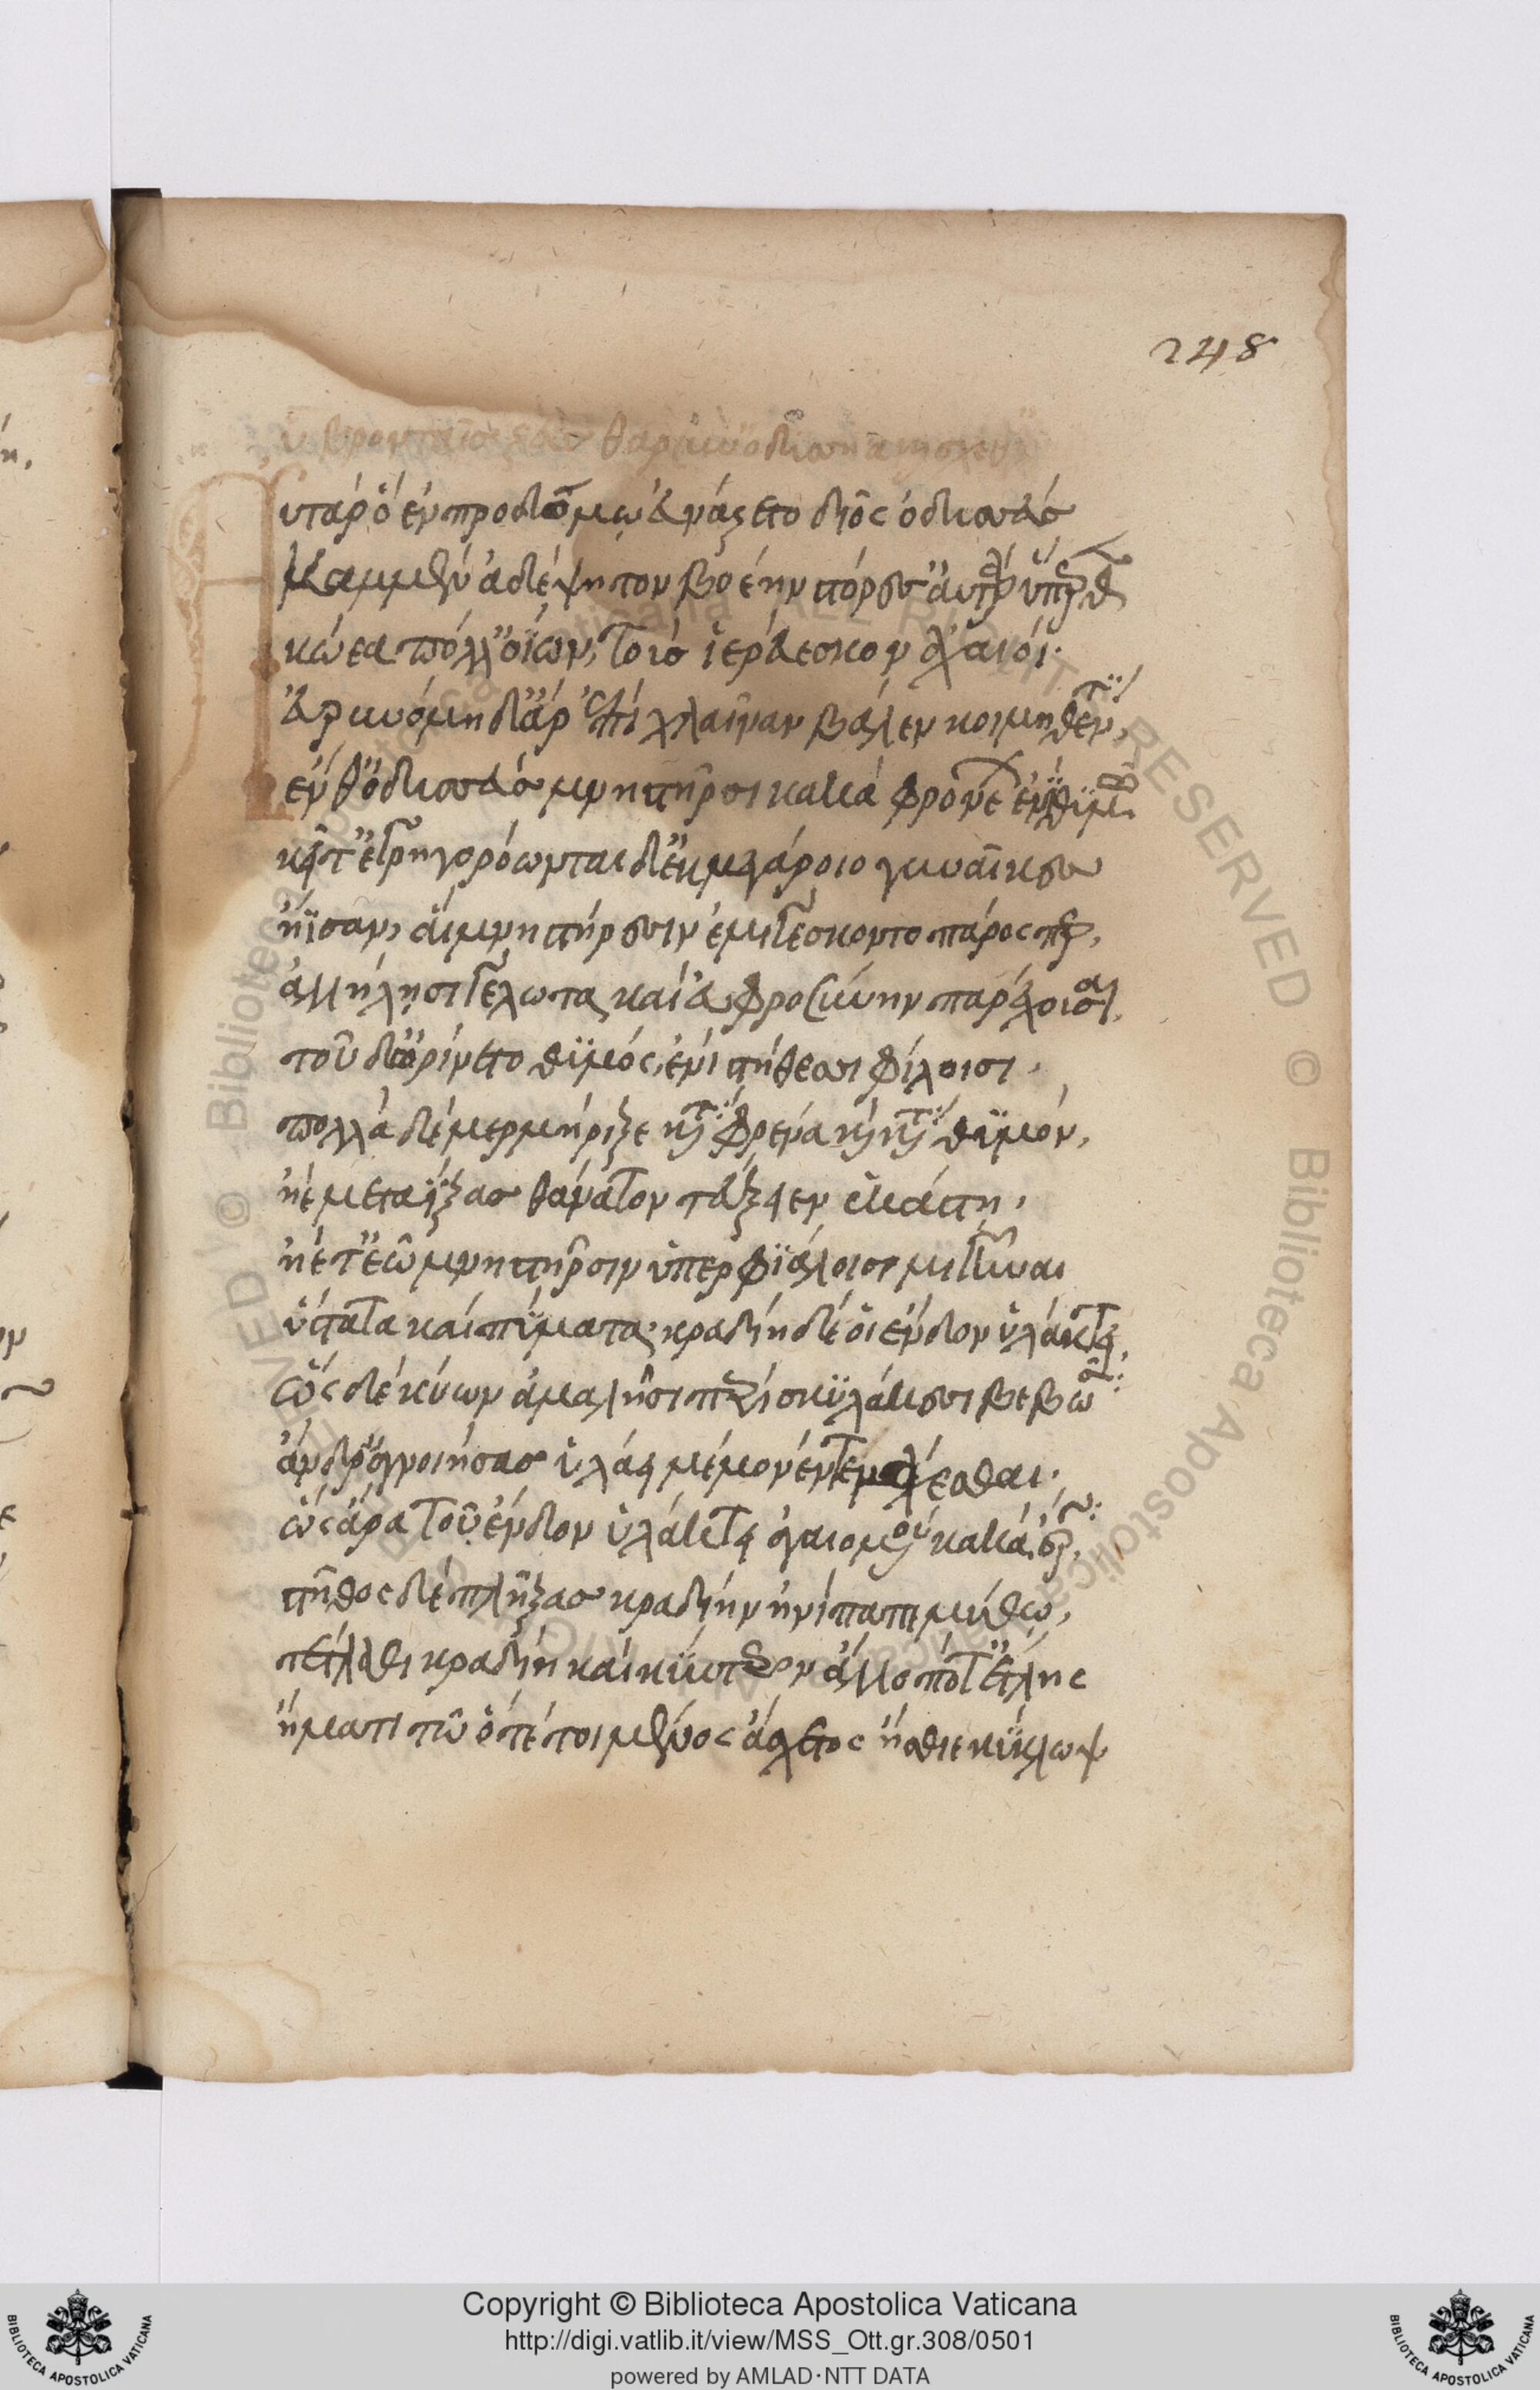 248
υταρ ὁ ἐν προδόμω εὐνάζετο δῖος ὀδυσσεύς
καμμὲν ἀδέψητον βοέην στόρεσ' αὐτὰρ ὕπερθε
κώεα πόλλ' ὀΐων, τοὺσ ἱερεύεσκον ἀχαιοί·
εὐρυνόμη δ' ἄρ' ἐπὶ χλαῖναν βάλεν κοιμηθέντι,
ἔνθ' ὀδυσσεύσ μνηστῆρσι κακὰ φρονέων ἐνὶ θυμῶ
κεῖτ' ἐγρηγορόων ται δ' ἐκ μεγάροιο γυναῖκεσ
ἤϊσαν, αἳ μνηστήρσιν ἐμισγέσκοντο πάρος περ,
ἀλλήλησι γέλωτα καὶ εὐφροσύνην παρέχουσαι,
τοῦ δ' ὠρίνετο θυμός, ἐνὶ στήθεσσι φίλοισι·
πολλὰ δὲ μερμήριξε κατὰ φρένα καὶ κατὰ θυμόν,
ἠὲ μεταΐξασ θάνατον τεύξειεν ἑκάστη,
ἠέ τ' ἐῶ μνηστῆρσιν ὑπερφιάλοισι μιγῆναι
ὕστατα καὶ πύματα· κραδίη δέ οἱ ἔνδον ὑλάκτει,
ὡς δὲ κύων ἀμαλῆσι περὶ σκυλάκεσσι βεβῶσα
ἄνδρ' ἀγνοιήσασ' ὑλάει μέμονέν τε μάχεσθαι·
ὥς ἄρα τοῦ ἔνδον ὑλάκτει ἀγαιομένου κακὰ ἔργα,
στῆθος δὲ πλήξασ κραδίην ἠνίπαπε μύθω,
τέτλαθι κραδίη καὶ κύντερον ἄλλο ποτ' ἔτλης
ἤματι τῶ ὅτέ τοι μένος ἄσχετος ἤσθιε κύκλωψ
Copyright © Biblioteca Apostolica Vaticana
http://digi.vatlib.it/view/MSS_Ott.gr.308/0501
powered by AMLAD·NTT DATA